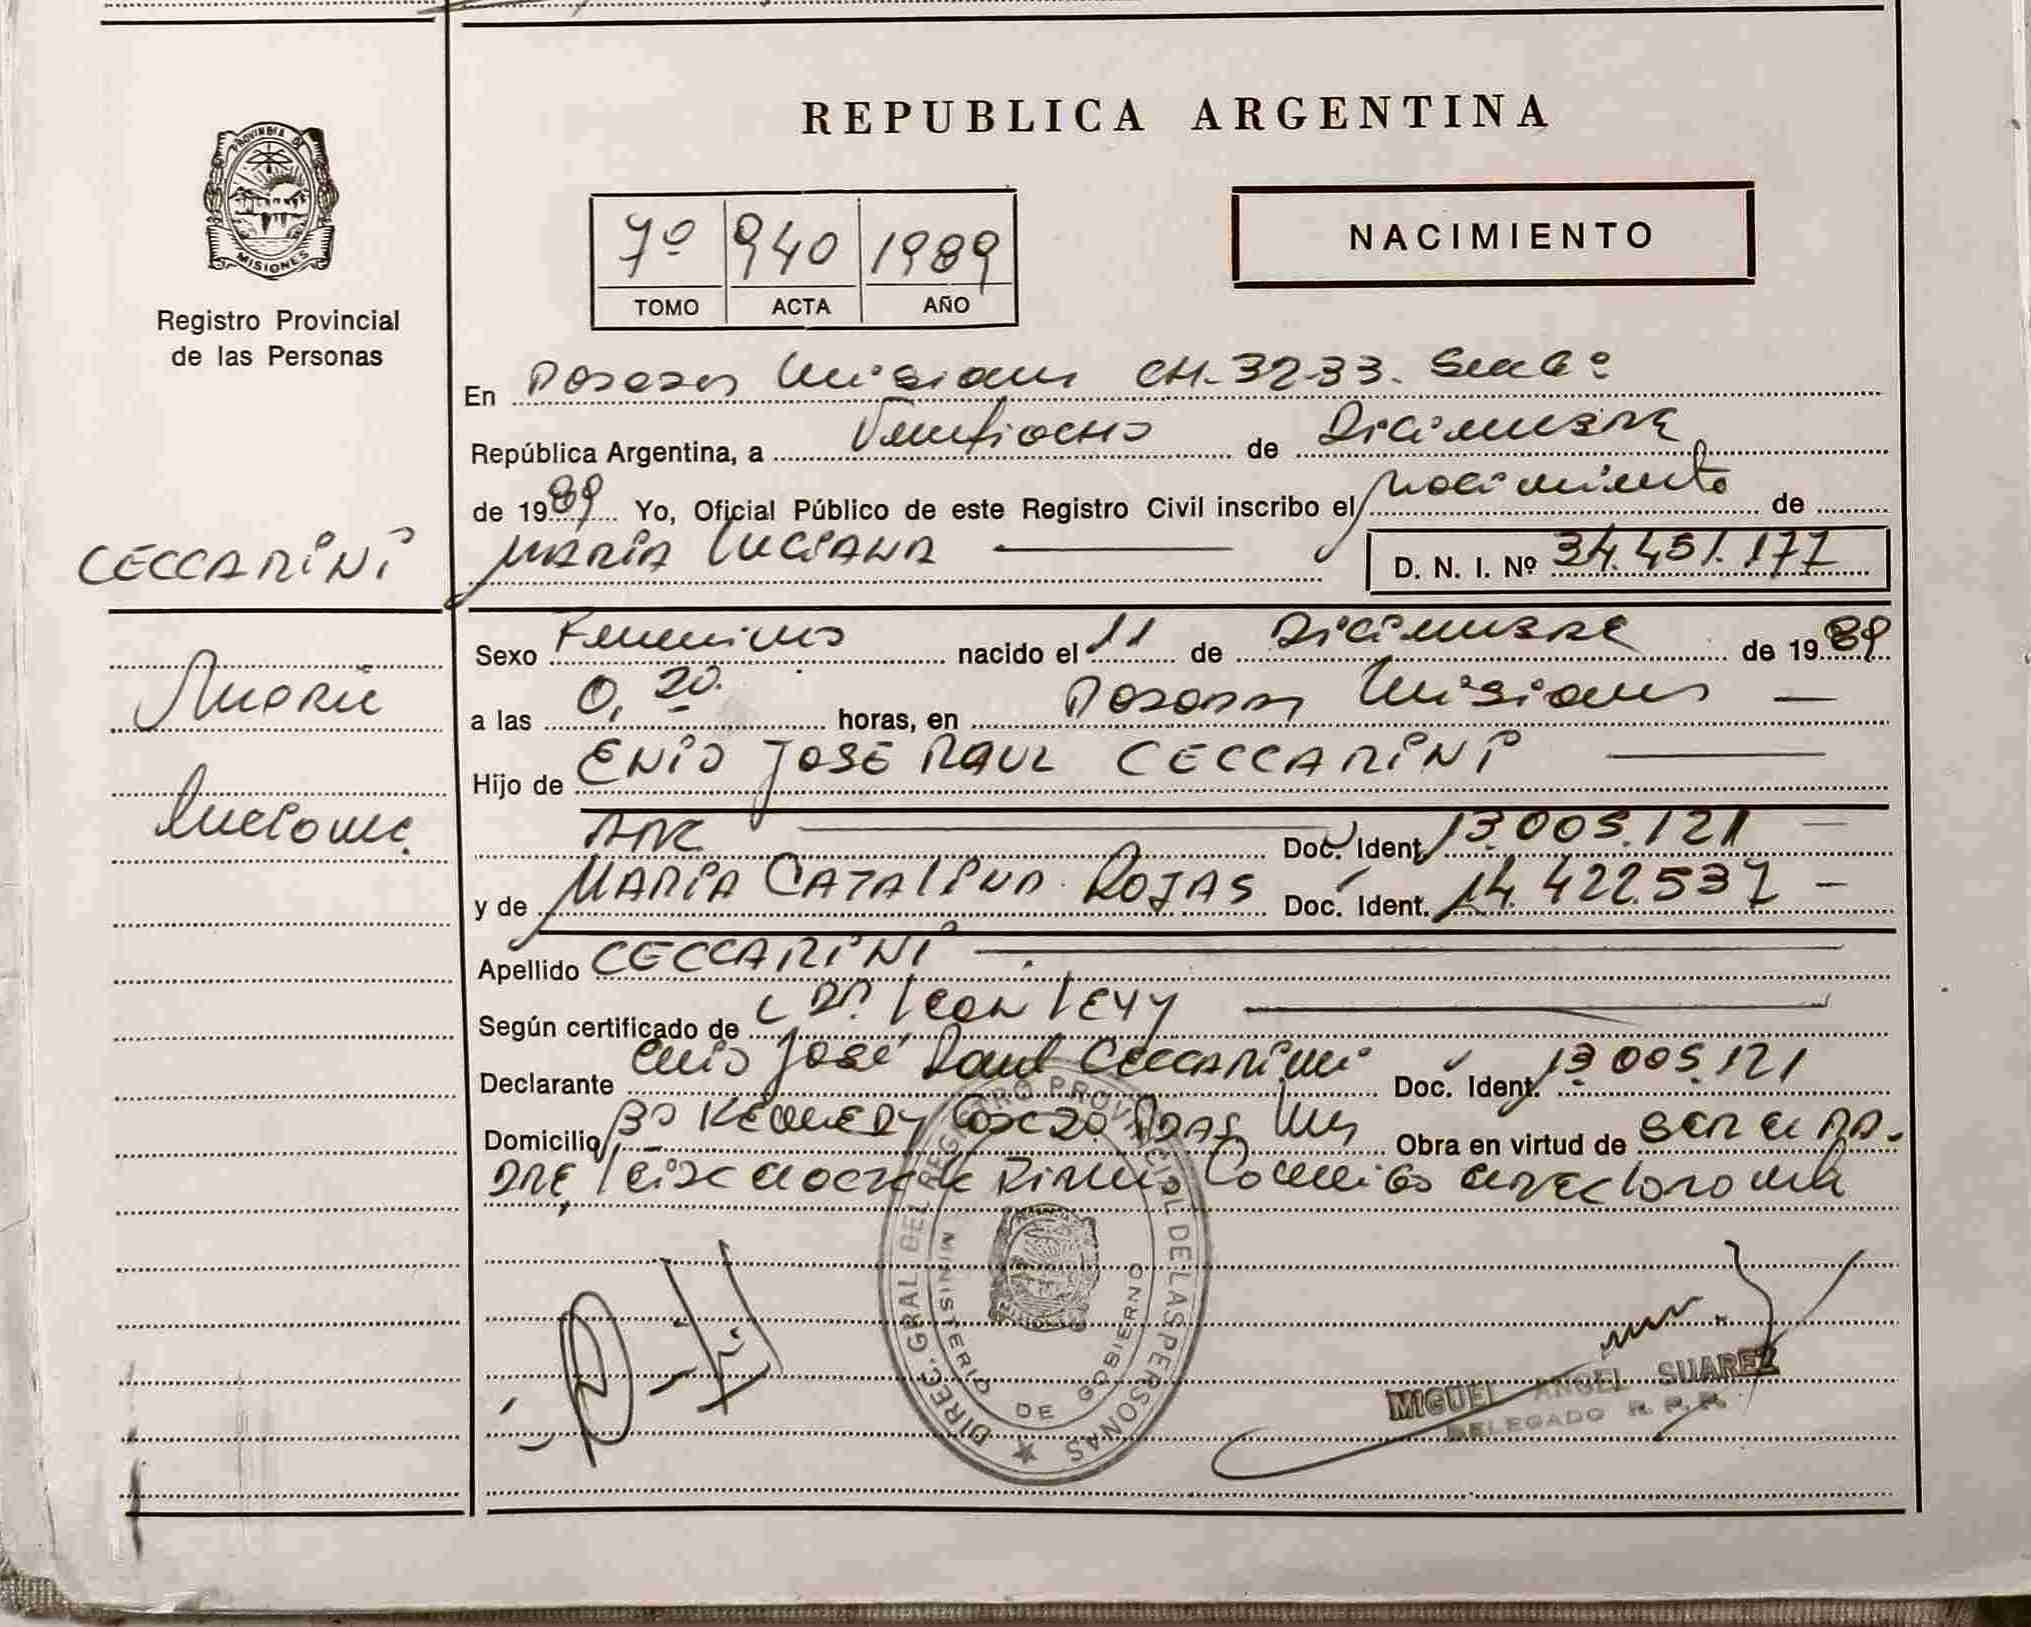 REPUBLICA ARGENTINA
PROVINCIA DE
MISIONES
Registro Provincial
de las Personas
7º 940 1989
TOMO ACTA AÑO
NACIMIENTO
En Posadas Misiones CH. 32-33.
República Argentina, a Veintiocho de Diciembre
de 1989 Yo, Oficial Público de este Registro Civil inscribo el Nacimiento de
CECCARINI
MARIA LUCIANA D. N. I. Nº 34.451.177
Sexo Femenino nacido el 11 de Diciembre de 1989
María
a las 0,20. horas, en Posadas Misiones
Hijo de ENIO JOSE RAUL CECCARINI
Luciana.
ARG. Doc. Ident. 13.005.121
y de MARIA CATALINA ROJAS Doc. Ident. 14.422.537
Apellido CECCARINI
Según certificado de DR. LEON LEVY
Declarante Enio José Raul Ceccarini Doc. Ident. 13.005.121
Domicilio Bº KENNEDY Obra en virtud de SER el PA-
DRE, Firma
DIREC. GRAL DEL REGISTRO PROVINCIAL DE LAS PERSONAS
MINISTERIO DE GOBIERNO
MIGUEL ANGEL SUAREZ
DELEGADO R. P. P.